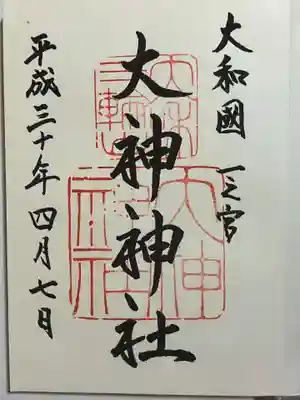 大和國 一之宮
大神神社
平成三十年四月七日
大神
神社